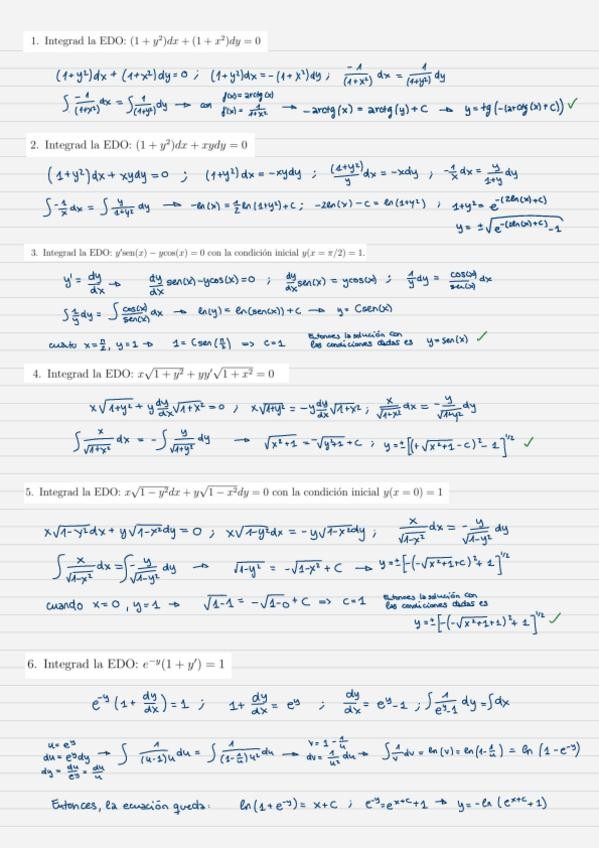 1. Integrad la EDO: (1 + y²)dx + (1 + x²)dy = 0
(1+y²)dx + (1+x²)dy = 0 ; (1+y²)dx = -(1+x²)dy ; -1/(1+x²) dx = 1/(1+y²) dy
∫ -1/(1+x²) dx = ∫ 1/(1+y²) dy → con f(x) = arctg(x) f'(x) = 1/(1+x²) → -arctg(x) = arctg(y) + C → y = tg(-(arctg(x)+C)) ✓
2. Integrad la EDO: (1 + y²)dx + xydy = 0
(1+y²)dx + xydy = 0 ; (1+y²)dx = -xydy ; (1+y²)/y dx = -xdy ; -1/x dx = y/(1+y) dy
∫ -1/x dx = ∫ y/(1+y²) dy → -ln(x) = 1/2 ln(1+y²) + C ; -2ln(x) - C = ln(1+y²) ; 1+y² = e^(-(2ln(x)+C))
y = ±√(e^(-(2ln(x)+C)) - 1)
3. Integrad la EDO: y'sen(x) − ycos(x) = 0 con la condición inicial y(x = π/2) = 1.
y' = dy/dx → dy/dx sen(x) - ycos(x) = 0 ; dy/dx sen(x) = ycos(x) ; 1/y dy = cos(x)/sen(x) dx
∫ 1/y dy = ∫ cos(x)/sen(x) dx → ln(y) = ln(sen(x)) + C → y = Csen(x)
cuando x = π/2, y = 1 → 1 = Csen(π/2) => C = 1 Entonces la solución con las condiciones dadas es y = sen(x) ✓
4. Integrad la EDO: x√(1 + y²) + yy'√(1 + x²) = 0
x√(1+y²) + y dy/dx √(1+x²) = 0 ; x√(1+y²) = -y dy/dx √(1+x²) ; x/√(1+x²) dx = -y/√(1+y²) dy
∫ x/√(1+x²) dx = -∫ y/√(1+y²) dy → √(x²+1) = -√(y²+1) + C ; y = ±[(+√(x²+1) - C)² - 1]^(1/2) ✓
5. Integrad la EDO: x√(1 − y²)dx + y√(1 − x²)dy = 0 con la condición inicial y(x = 0) = 1
x√(1-y²)dx + y√(1-x²)dy = 0 ; x√(1-y²)dx = -y√(1-x²)dy ; x/√(1-x²) dx = -y/√(1-y²) dy
∫ x/√(1-x²) dx = ∫ -y/√(1-y²) dy → √(1-y²) = -√(1-x²) + C → y = ±[-(-√(x²+1)+C)² + 1]^(1/2)
cuando x = 0, y = 1 → √(1-1) = -√(1-0) + C => C = 1 Entonces la solución con las condiciones dadas es
y = ±[-(-√(x²+1)+1)² + 1]^(1/2) ✓
6. Integrad la EDO: e^(−y)(1 + y') = 1
e^(-y)(1 + dy/dx) = 1 ; 1 + dy/dx = e^y ; dy/dx = e^y - 1 ; ∫ 1/(e^y-1) dy = ∫dx
u = e^y du = e^y dy dy = du/e^y = du/u → ∫ 1/((u-1)u) du = ∫ 1/((1-1/u)u²) du → v = 1 - 1/u dv = 1/u² du → ∫ 1/v dv = ln(v) = ln(1-1/u) = ln(1-e^(-y))
Entonces, la ecuación queda: ln(1+e^(-y)) = x+C ; e^(-y) = e^(x+C) + 1 → y = -ln(e^(x+C)+1)